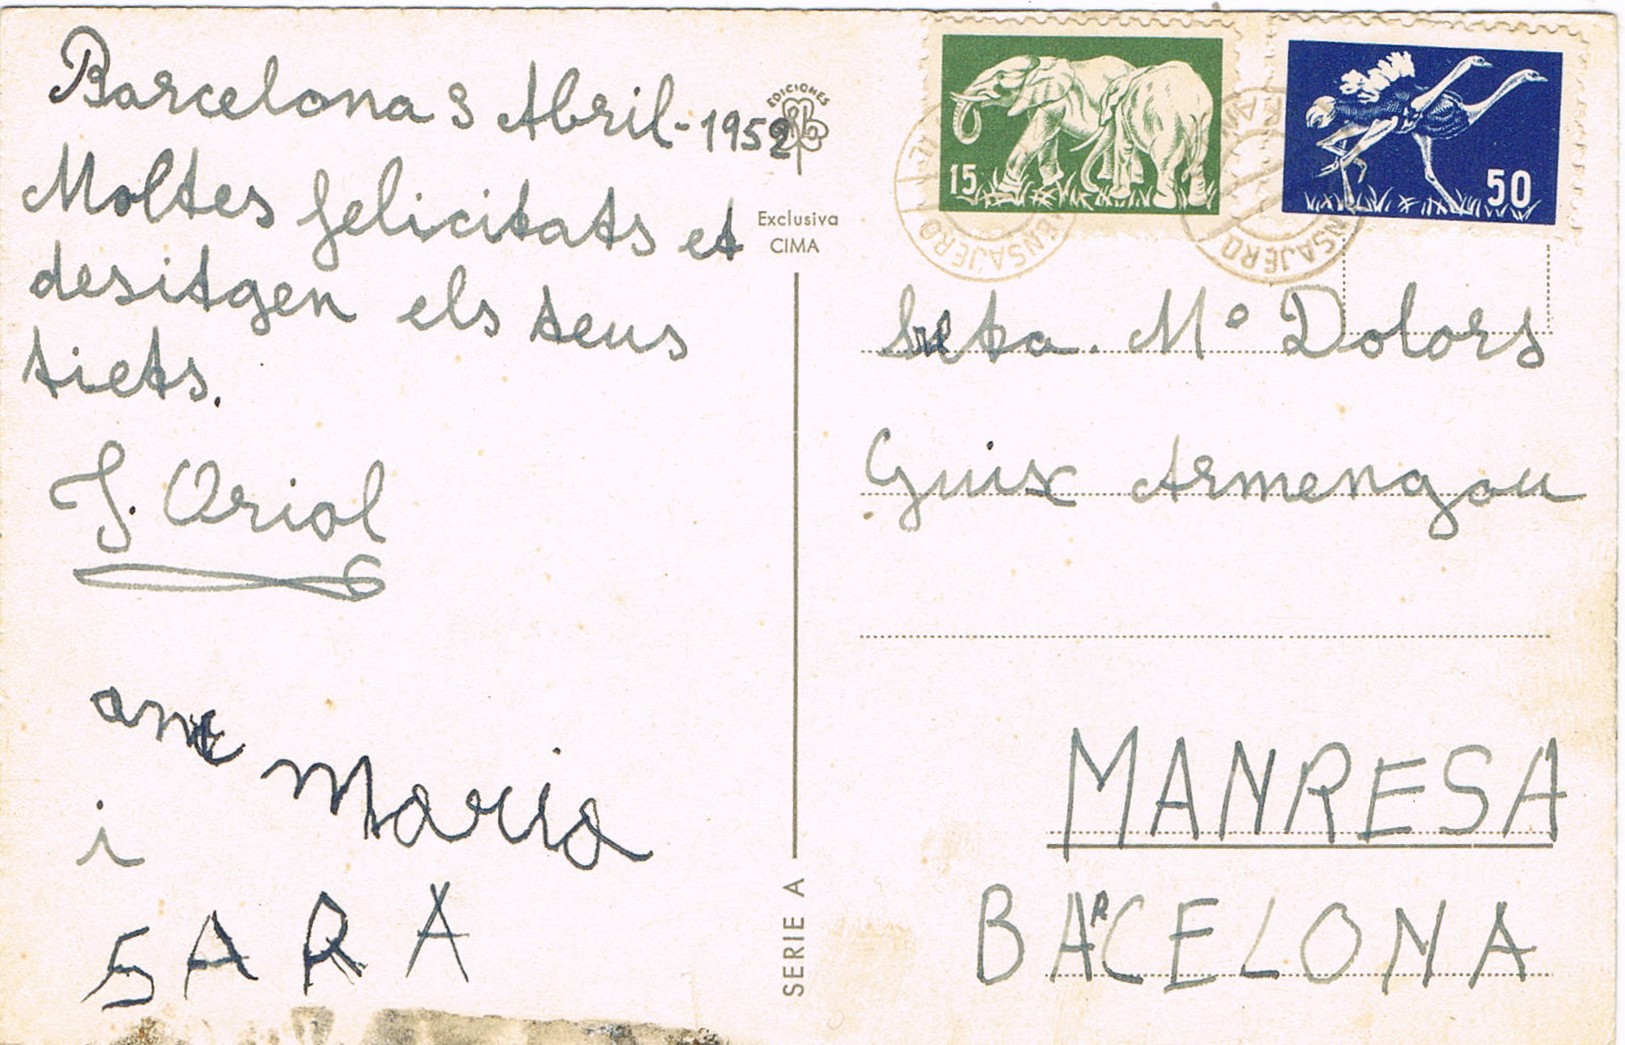 Barcelona 3 Abril-1952
Moltes felicitats et
desitgen els teus
tiets.
J. Oriol
ana
Maria
i
SARA
EDICIONES
Exclusiva
CIMA
SERIE A
15
50
MENSAJERO
MENSAJERO
Srta. Mª Dolors
Guix Armengou
MANRESA
BARCELONA